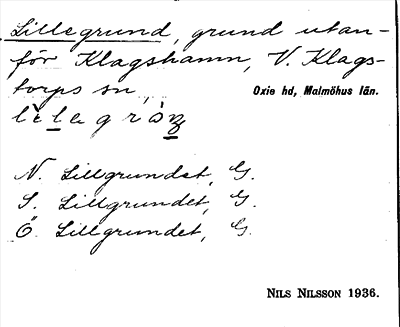 Lillegrund, grund utan-
för Klagshamn, V. Klags-
torps sn, Oxie hd, Malmöhus län.
N. Lillgrundet, G.
S. Lillgrundet, G.
Ö. Lillgrundet, G.
NILS NILSSON 1936.